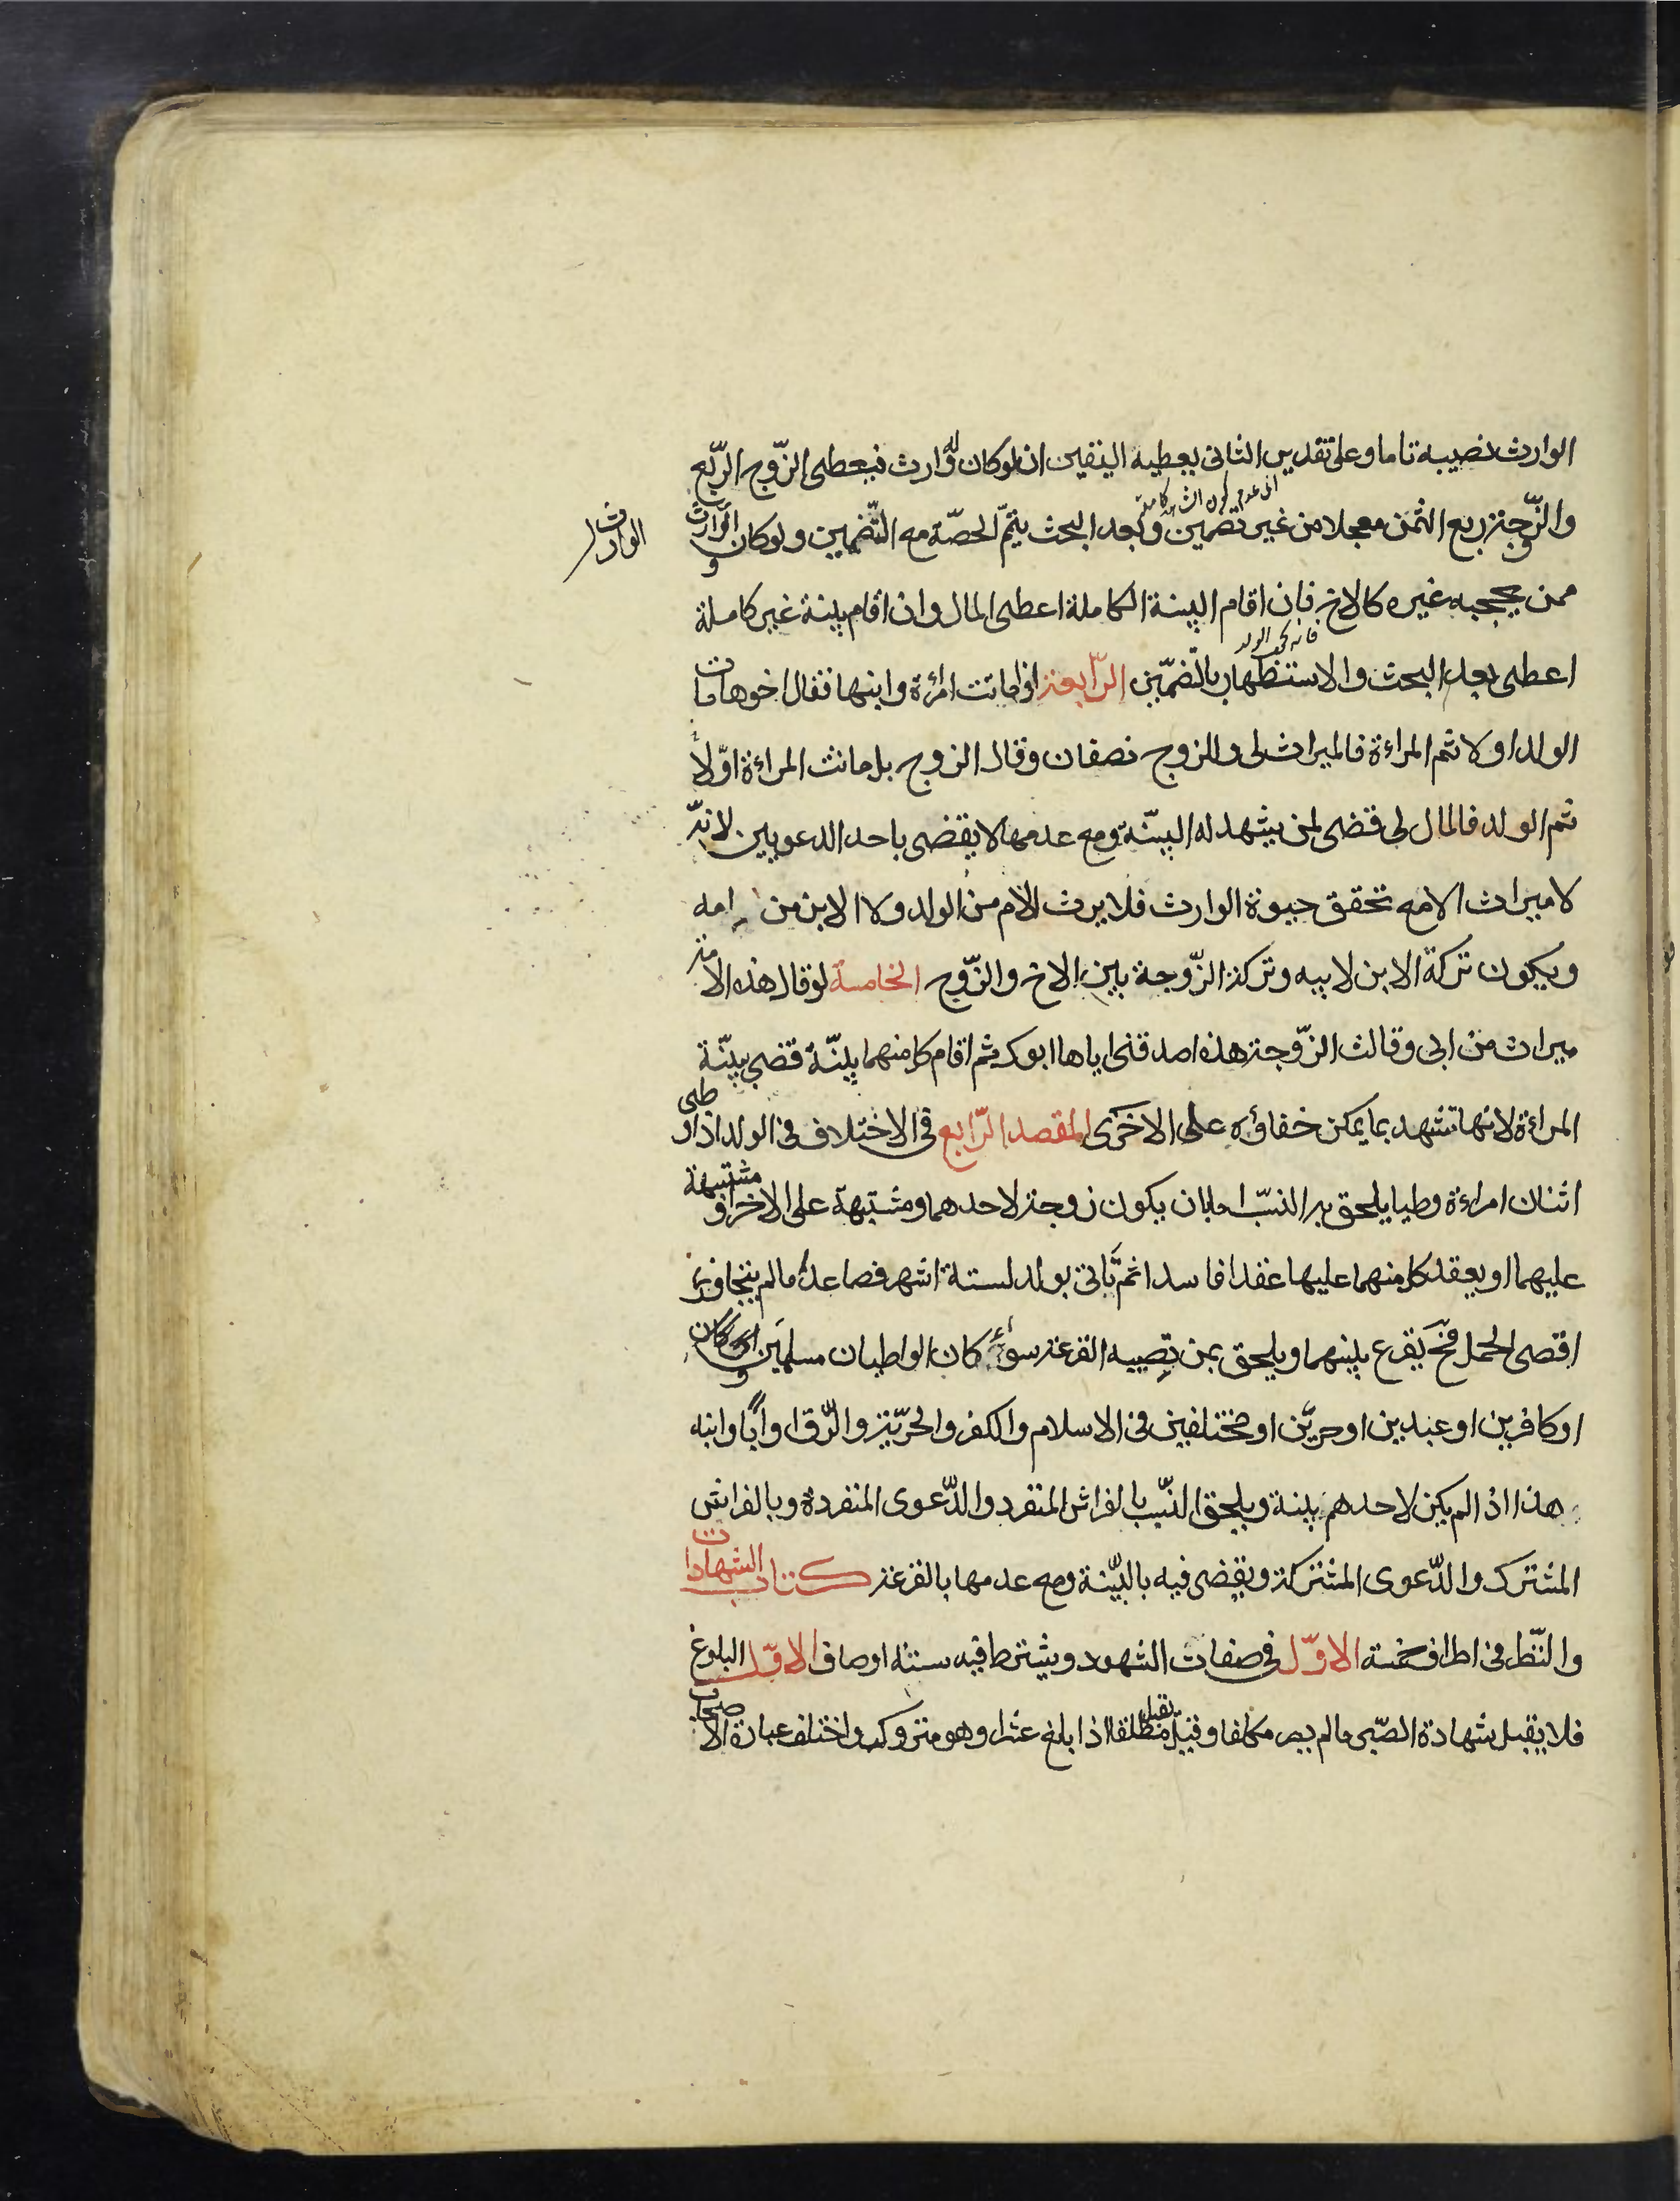 الوارث نصيبه تاما وعلى تقدير الثاني يعطيه اليقين ان لو كان له وارث فيعطى الزّوج الرّبع
والزّوجة ربع الثمن معجلا من غير تضمين وبعد البحث يتمّ الحصّة مع التّضمين ولو كان الوارث
الوارث
ممن يحجبه غيره كالاخ فان اقام البينة الكاملة اعطى المال وان اقام بينة غير كاملة
فانه يحجبه الولد
اعطى بعد البحث والاستظهار بالتّضمين الرّابعة اذا ماتت امراءة وابنها فقال اخوها مات
الولد اولا ثم المراءة فالميراث لى وللزوج نصفان وقال الزوج بل ماتت المراءة اوّلا
ثم الولد فالمال لى قضى لمن يشهد له البيّنة ومع عدمها لا يقضى باحد الدعويين لانّه
لا ميراث الا مع تحقق حيوة الوارث فلا يرث الام من الولد ولا الابن من امه
ويكون تركة الابن لابيه وتركة الزّوجة بين الاخ والزّوج الخامسة لو قال هذه الامة
ميراث من ابى وقالت الزّوجة هذه اصدقنى اياها ابوك ثم اقام كل منهما بيّنة قضى ببيّنة
المراءة لانها تشهد بما يمكن خفاؤه على الاخرى المقصد الرّابع فى الاختلاف فى الولد اذا وطى
اثنان امراءة وطيا يلحق به النسب اما بان يكون زوجة لاحدهما ومشتبهة على الاخر او مشتبهة
عليهما او يعقد كل منهما عليها عقدا فاسدا ثم تاتى بولد لستة اشهر فصاعدا ما لم يتجاوز
اقصى الحمل فح يقرع بينهما ويلحق بمن تصيبه القرعة سواء كان الواطيان مسلمين
او كافرين او عبدين او حرّين او مختلفين فى الاسلام والكفر والحريّة والرّق او ابًا وابنه
هذا اذا لم يكن لاحدهم بينة ويلحق النّسب بالفراش المنفرد والدّعوى المنفردة وبالفراش
المشترك والدّعوى المشتركة ويقضى فيه بالبيّنة ومع عدمها بالقرعة كتاب الشهادات
والنّظر فى اطراف خمسة الاوّل فى صفات الشهود ويشترط فيه ستة اوصاف الاوّل البلوغ
فلا يقبل شهادة الصّبى ما لم يصر مكلفا وقيل تقبل مطلقا اذا بلغ عشرا وهو متروك واختلف عبارة الاصحاب